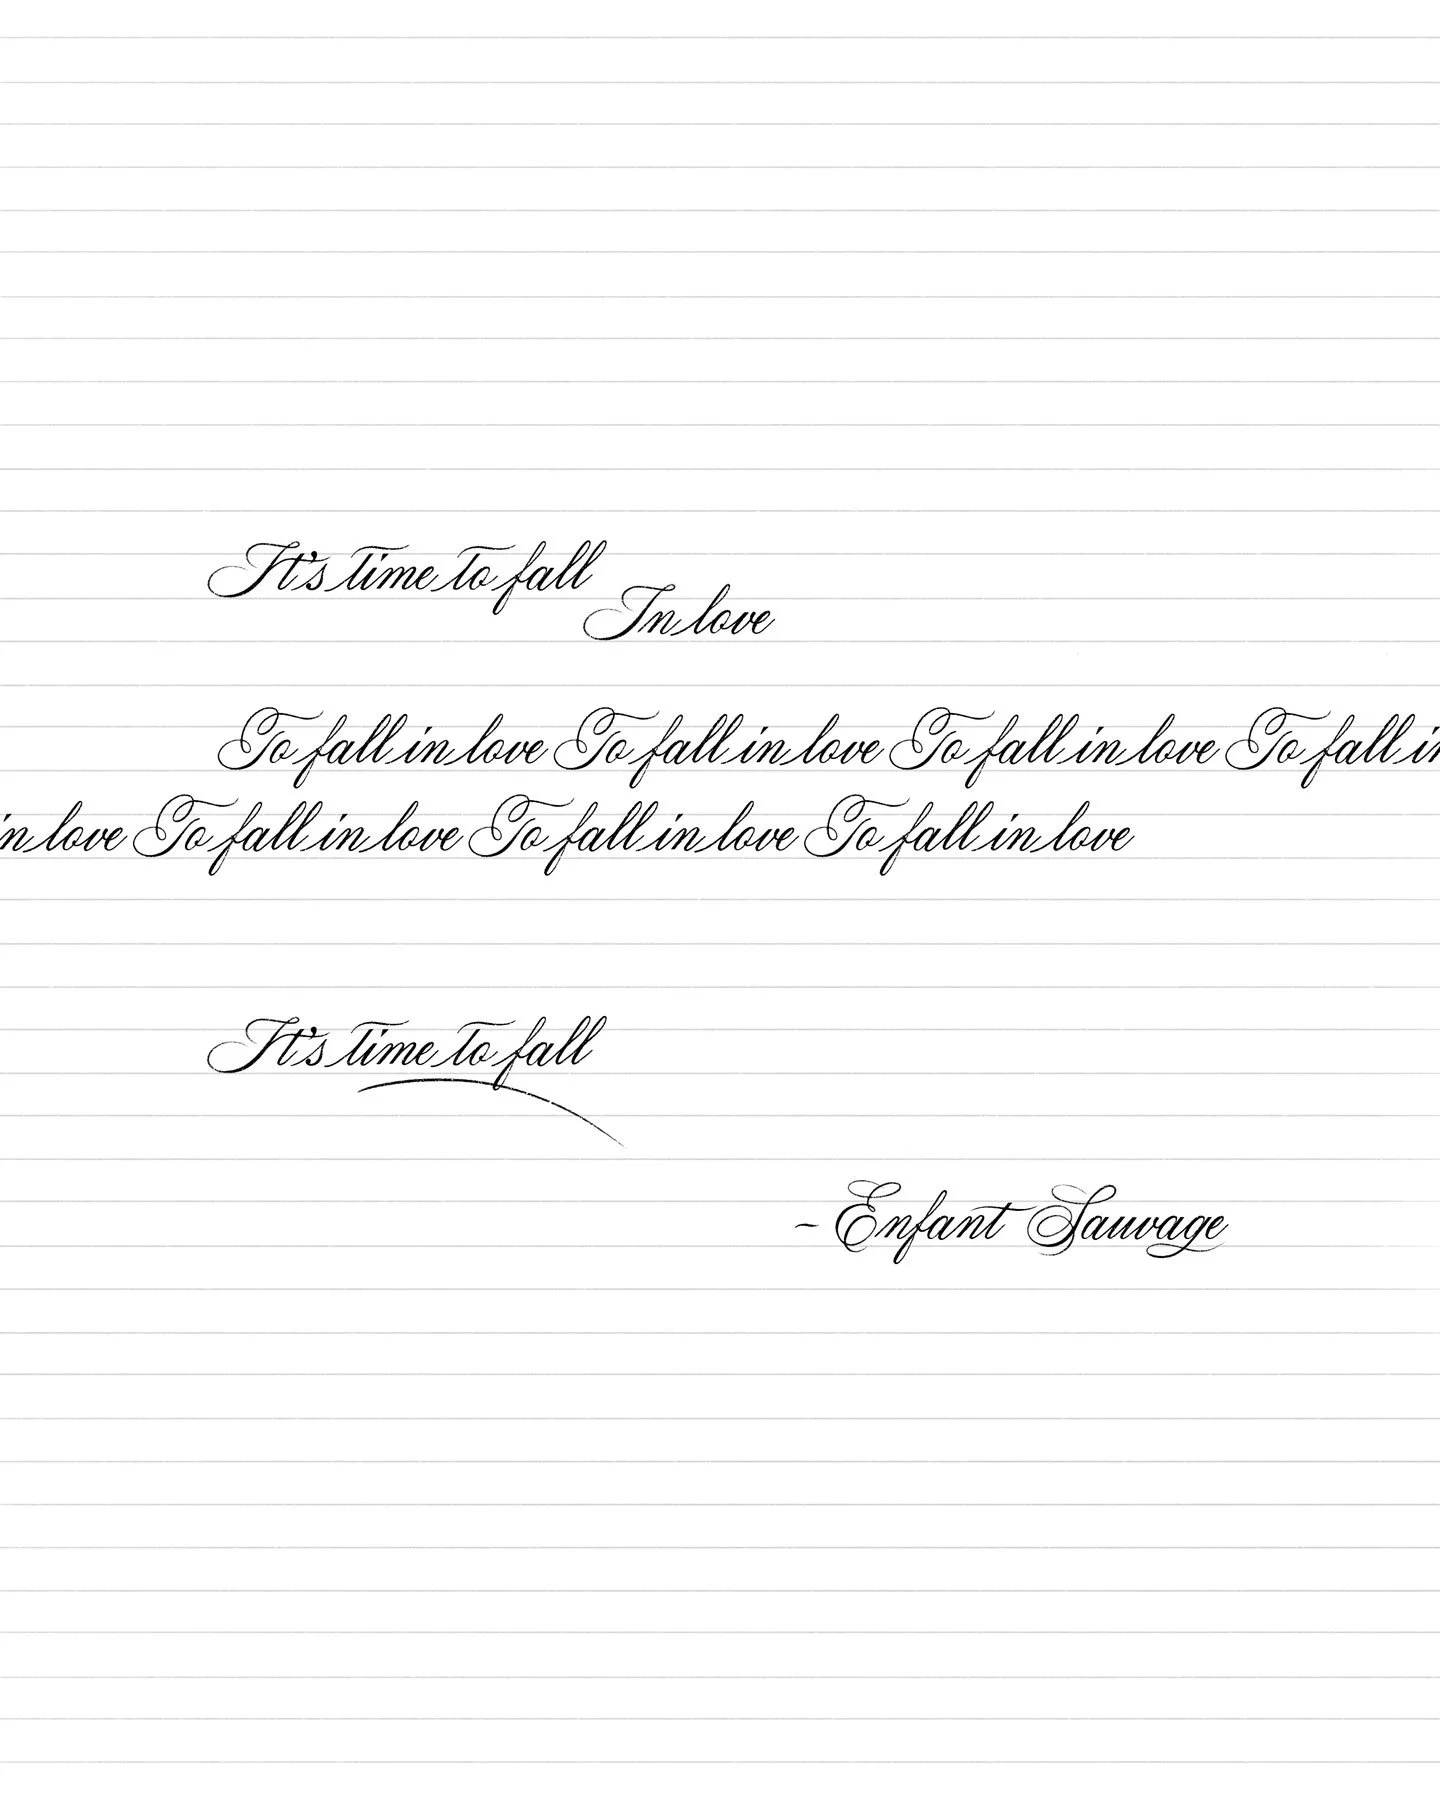 It's time to fall
In love
To fall in love To fall in love To fall in love To fall in
in love To fall in love To fall in love To fall in love
It's time to fall
- Enfant Sauvage